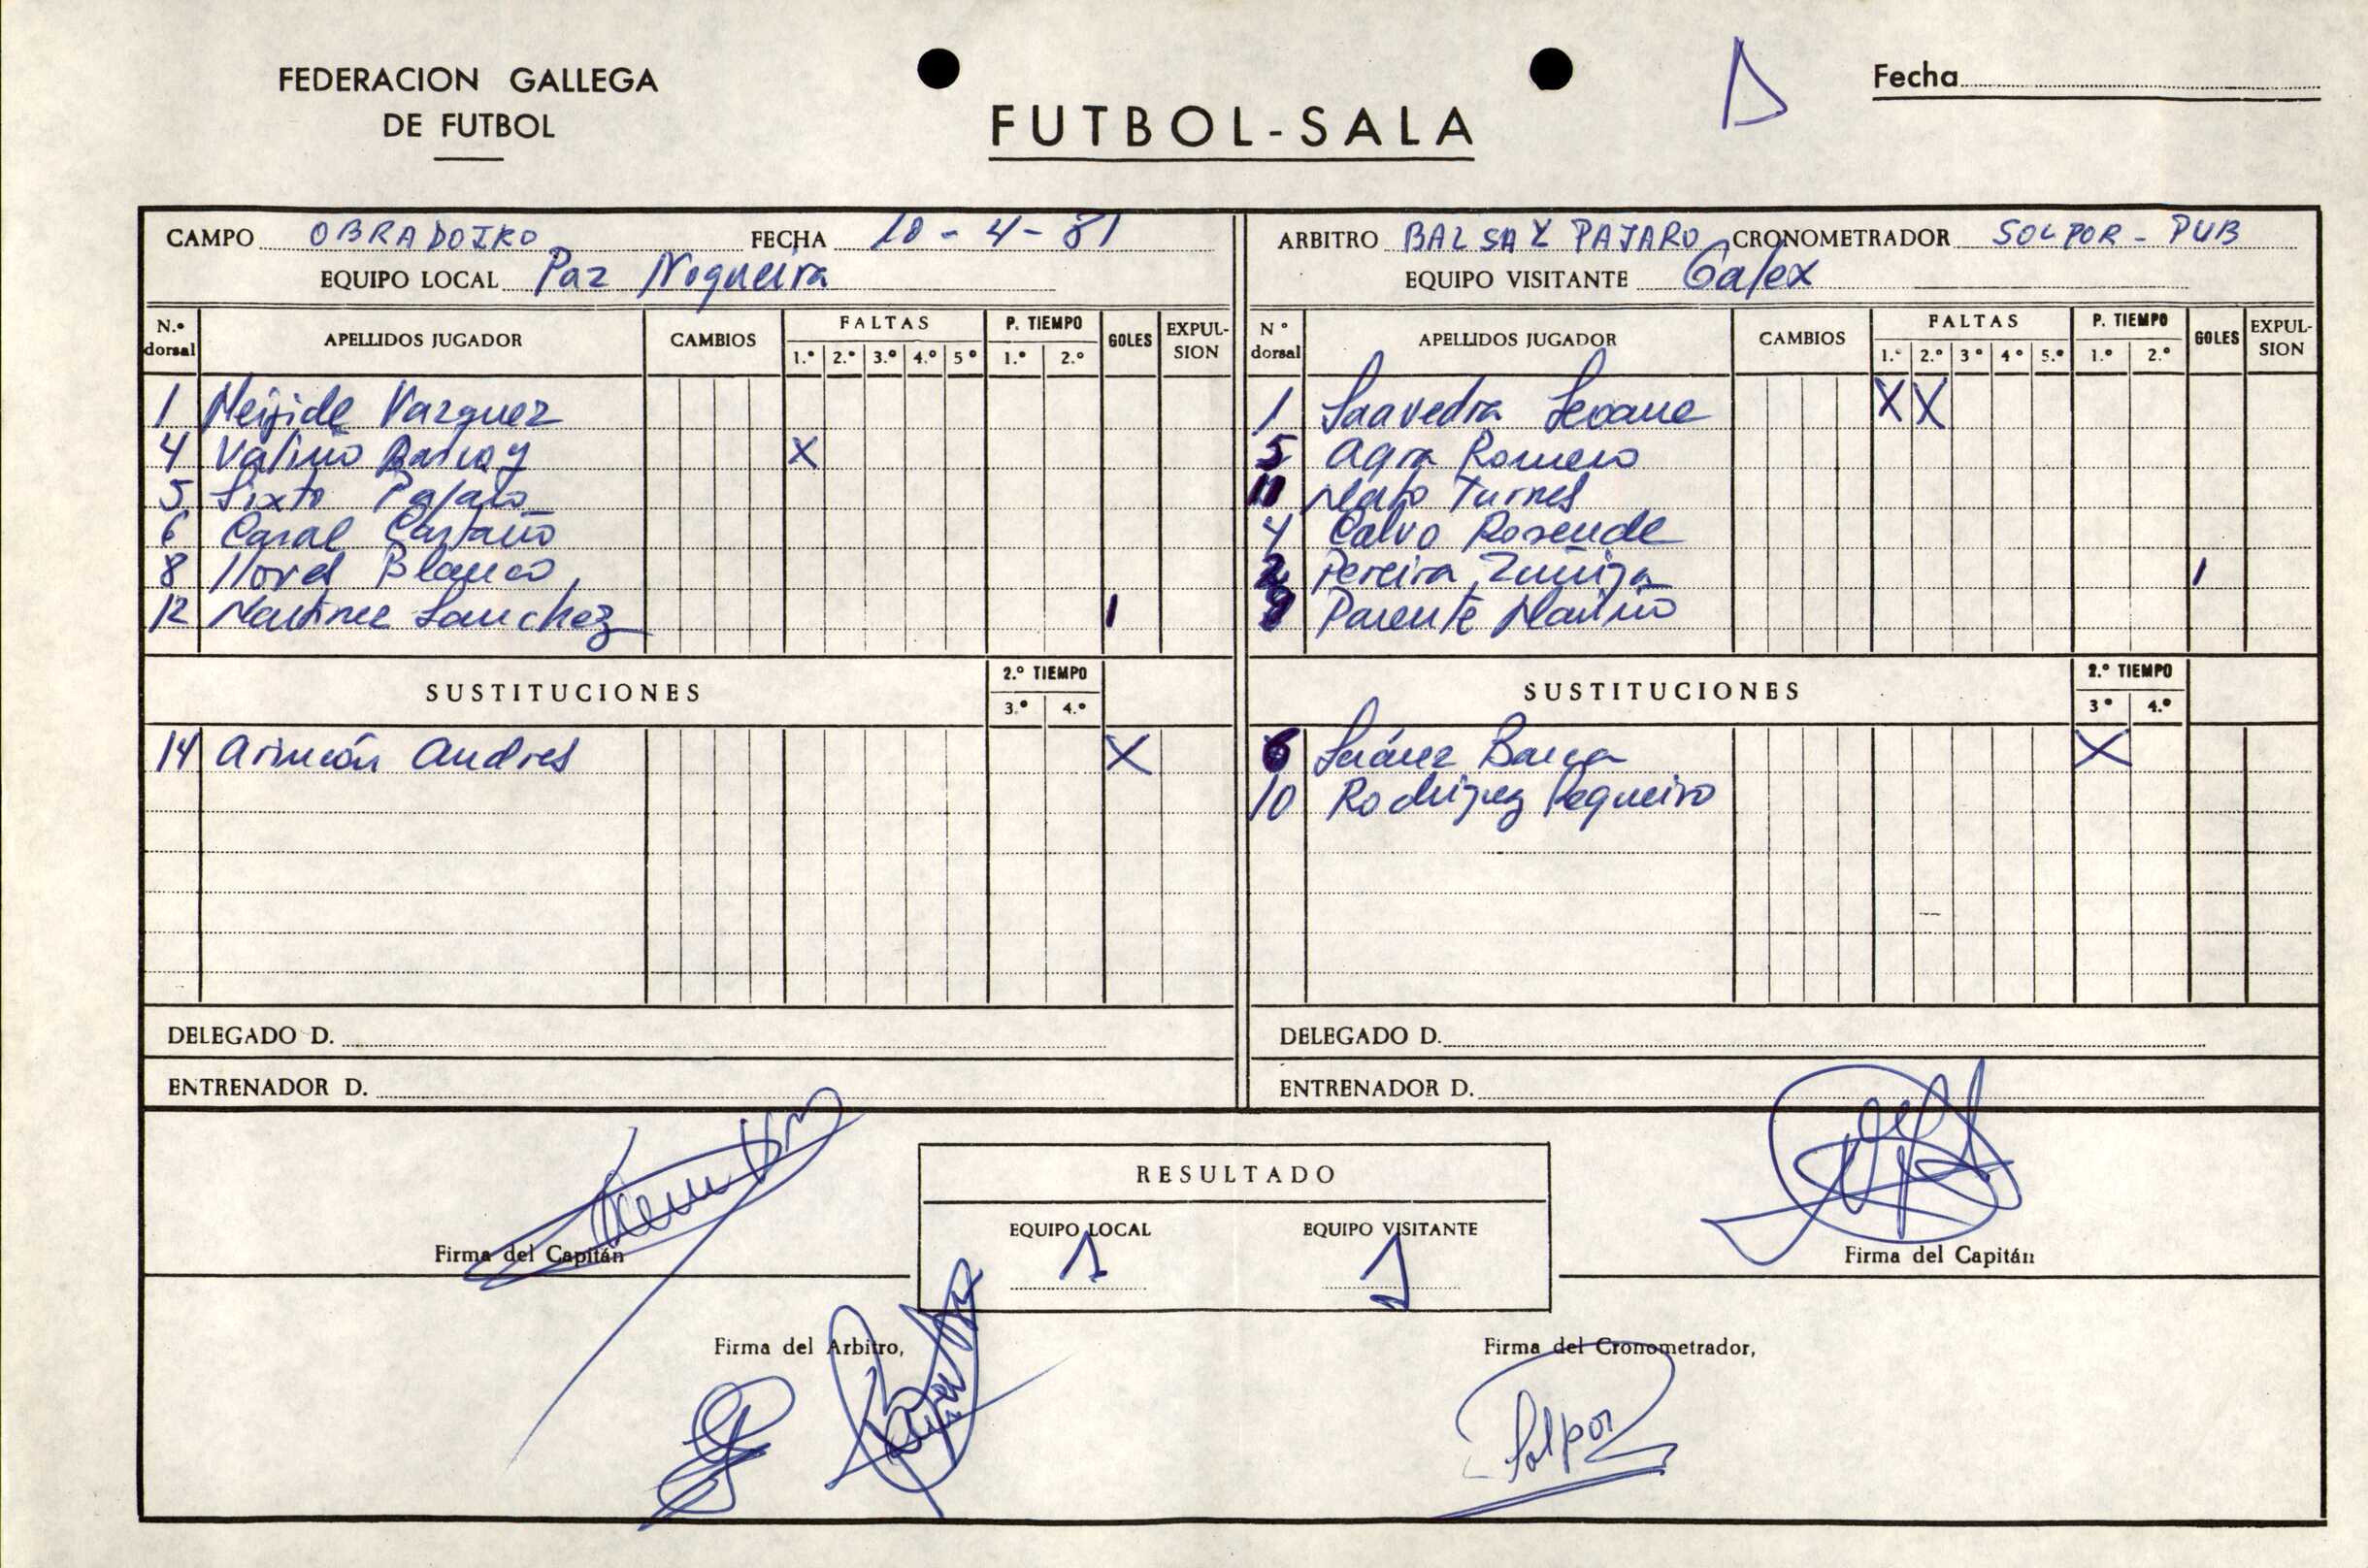 FEDERACION GALLEGA
DE FUTBOL
FUTBOL-SALA
Fecha
CAMPO OBRADOIRO FECHA 10-4-81
EQUIPO LOCAL Paz Nogueira
N.º dorsal APELLIDOS JUGADOR CAMBIOS FALTAS 1.º 2.º 3.º 4.º 5º P. TIEMPO 1.º 2.º GOLES EXPULSION
1 Meijide Vazquez
4 Valiño X
5 Sixto Pajaro
6 Casal Castaño
8 Blanco
12 Martinez Sanchez 1
SUSTITUCIONES 2.º TIEMPO 3.º 4.º
14 Arincón Andres X
DELEGADO D.
ENTRENADOR D.
ARBITRO BALSA Y PAJARO CRONOMETRADOR SOLPOR - PUB
EQUIPO VISITANTE Galex
N º dorsal APELLIDOS JUGADOR CAMBIOS FALTAS 1.º 2.º 3º 4º 5.º P. TIEMPO 1.º 2.º GOLES EXPULSION
1 Saavedra Seoane X X
5 Agra Romero
11 Mato Turnes
4 Calvo Rosende
2 Pereira Zuñiga 1
Parente Mariño
SUSTITUCIONES 2.º TIEMPO 3º 4.º
6 Suárez Barca X
10 Rodriguez Regueiro
DELEGADO D.
ENTRENADOR D.
RESULTADO
EQUIPO LOCAL EQUIPO VISITANTE
1 1
Firma del Capitán
Firma del Capitán
Firma del Arbitro,
Firma del Cronometrador,
Solpor